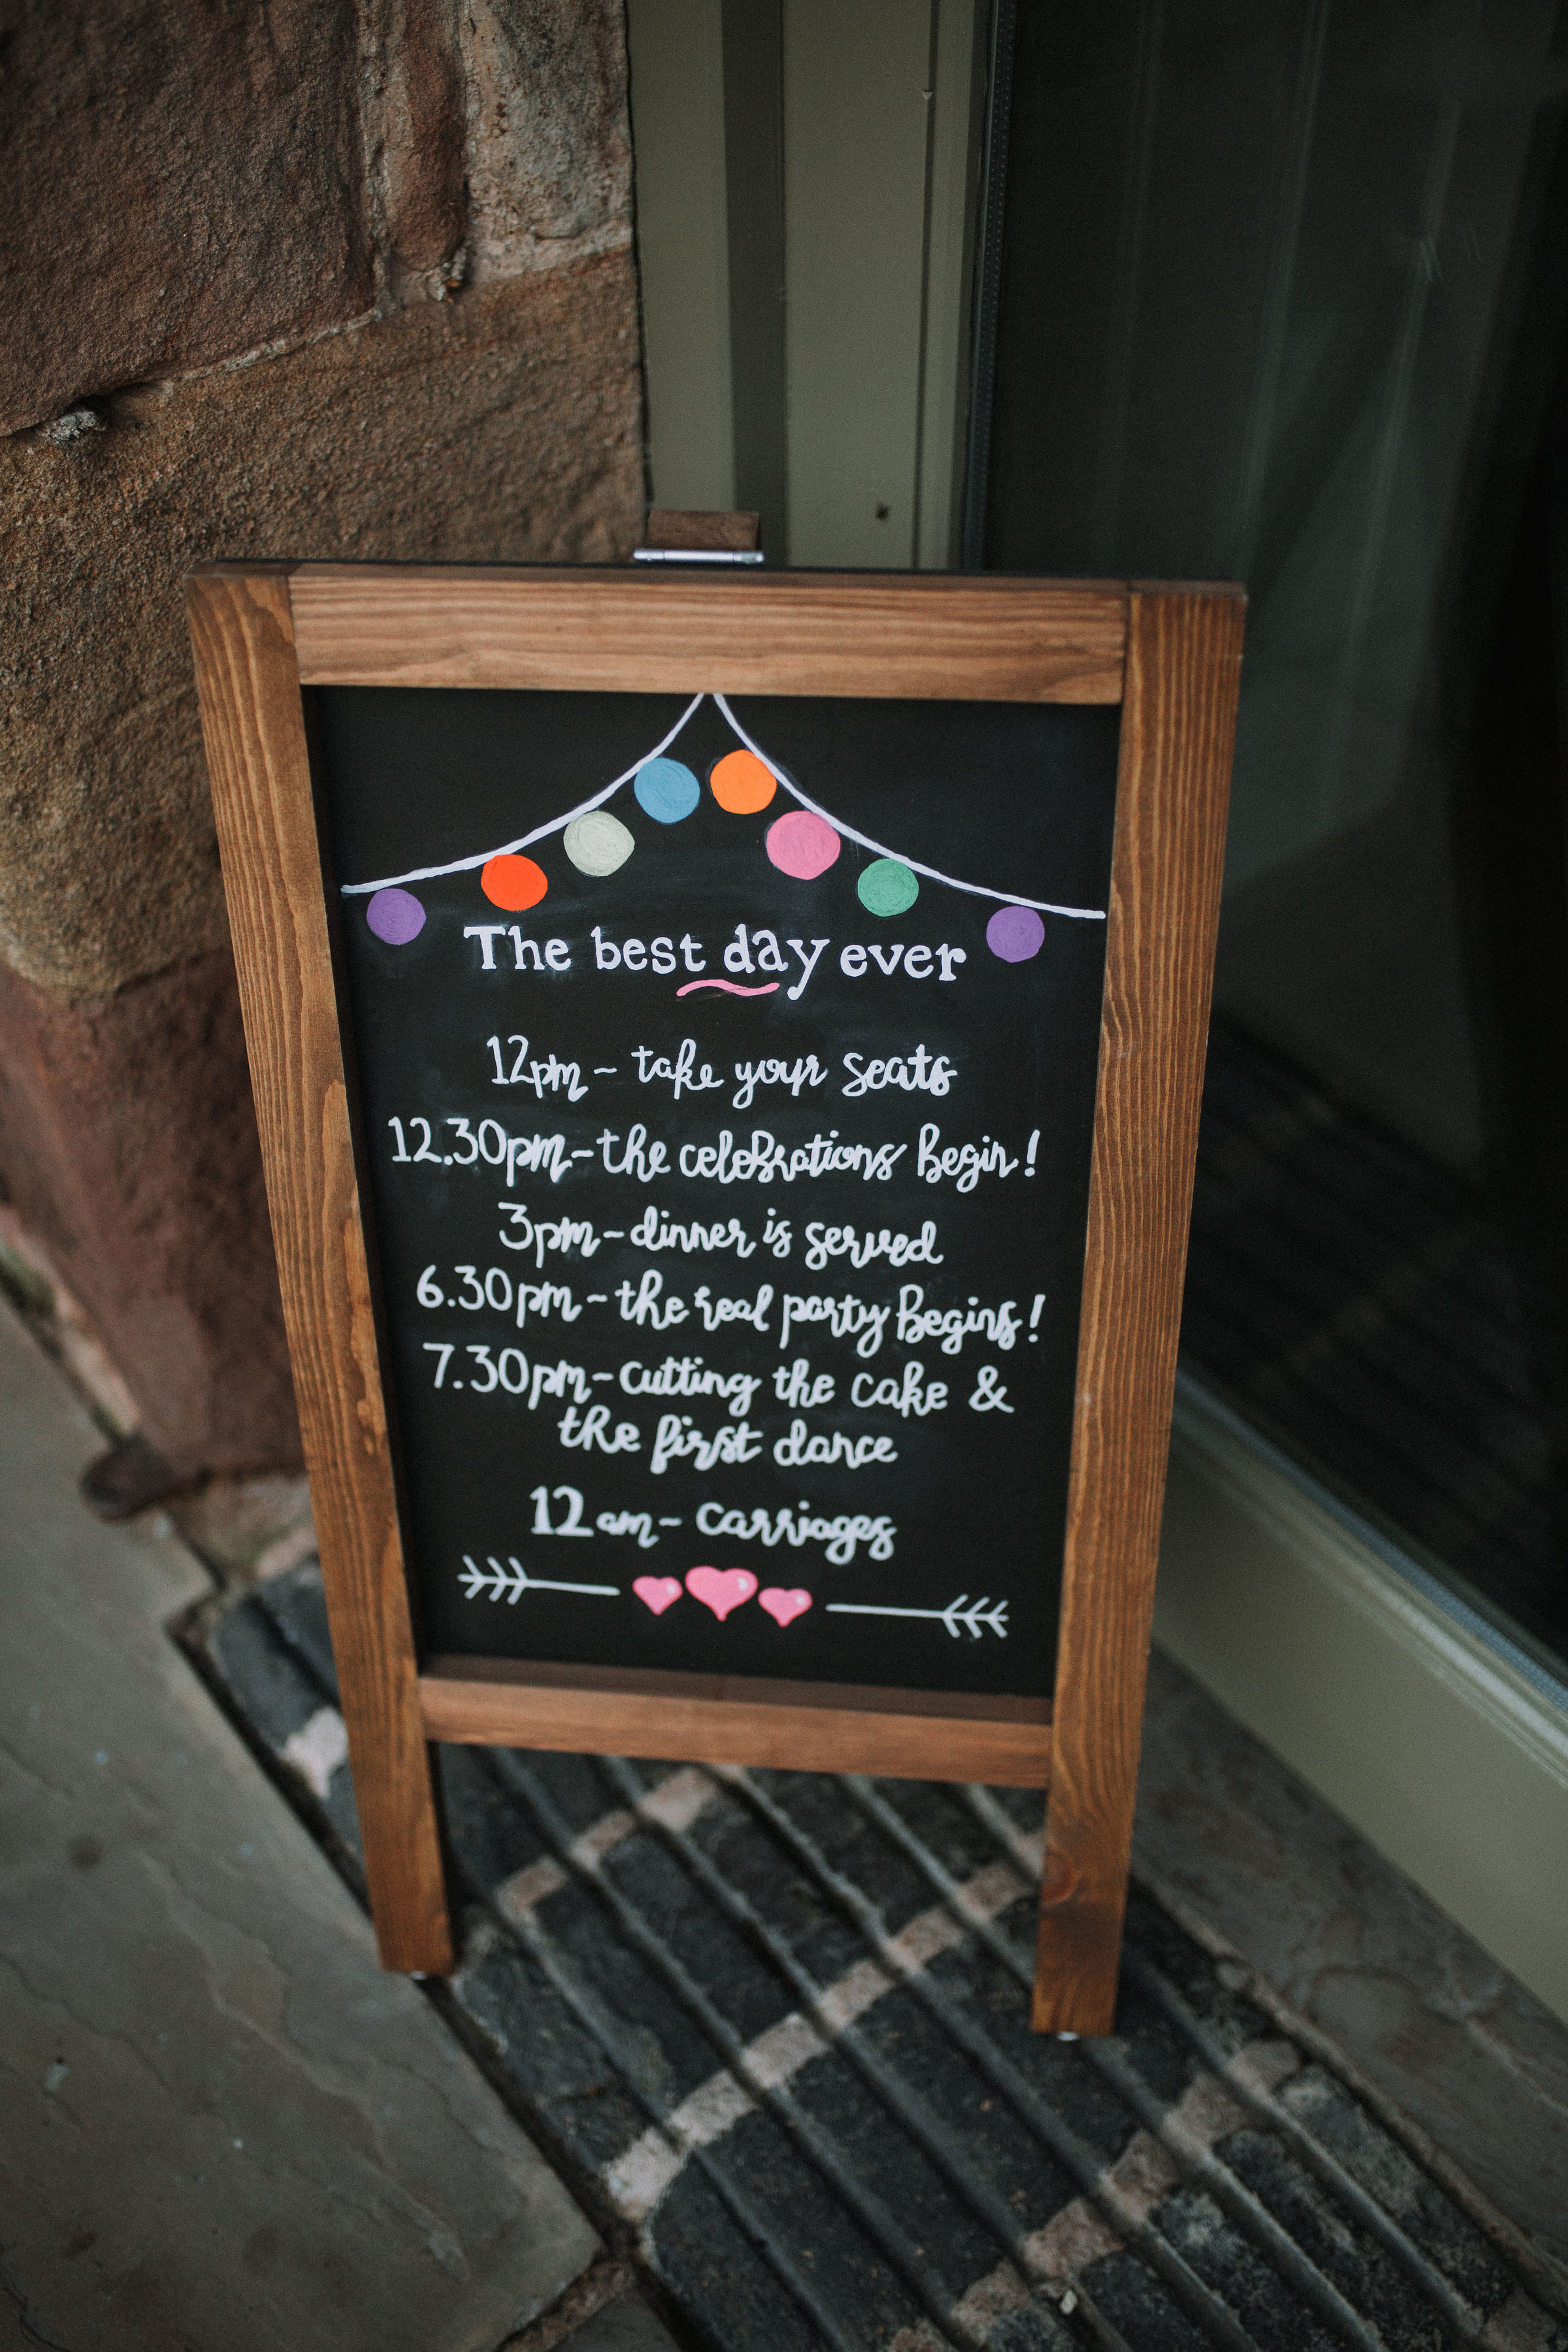 The best day ever
12pm - take your seats
12.30pm - the celebrations begin!
3pm - dinner is served
6.30pm - the real party begins!
7.30pm - cutting the cake &
the first dance
12am - carriages